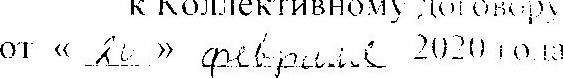 к Коллективному договору
от « 20 » февраля 2020 года